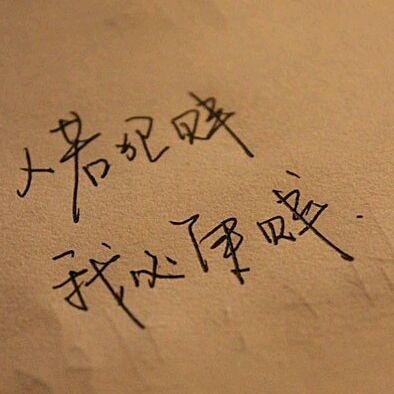 人若犯贱
我必贱.